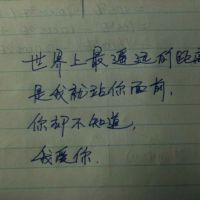 世界上最遥远的距离
是我就站你面前，
你却不知道，
我爱你.